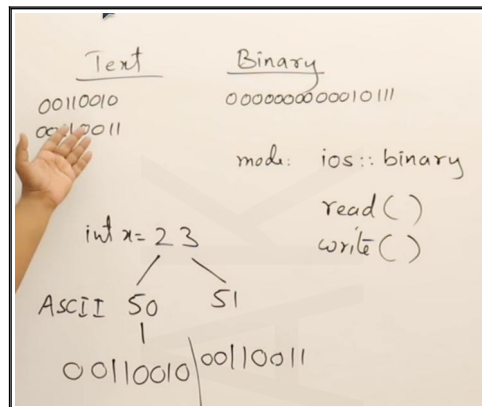 Text
00110010
00110011
Binary
0000000000010111
mode: ios::binary
read()
write()
int x= 23
ASCII 50 51
00110010 00110011